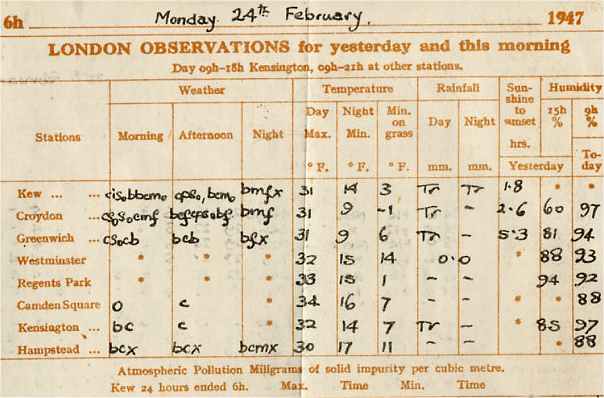 6h Monday 24th February. 1947
LONDON OBSERVATIONS for yesterday and this morning
Day 09h-18h Kensington, 09h-21h at other stations.
Stations Weather Temperature Rainfall Sunshine to sunset Humidity
Morning Afternoon Night Day Max. Night Min. Min. on grass Day Night hrs. 15h % 9h %
° F. ° F. ° F. mm. mm. Yesterday To-day
Kew ... ... bmfx 31 14 3 Tr Tr 1.8 * *
Croydon ... bmf 31 9 -1 Tr - 2.6 60 97
Greenwich ... cs₀cb bcb bfx 31 9 6 Tr - 5.3 81 94
Westminster * * * 32 15 14 0.0 * 88 93
Regents Park * * * 33 15 1 - - 94 92
Camden Square o c * 34 16 7 - - * * 88
Kensington ... bc c * 32 14 7 Tr - * 85 97
Hampstead ... bcx bcx bcmx 30 17 11 - - * 88
Atmospheric Pollution Milligrams of solid impurity per cubic metre.
Kew 24 hours ended 6h. Max. Time Min. Time